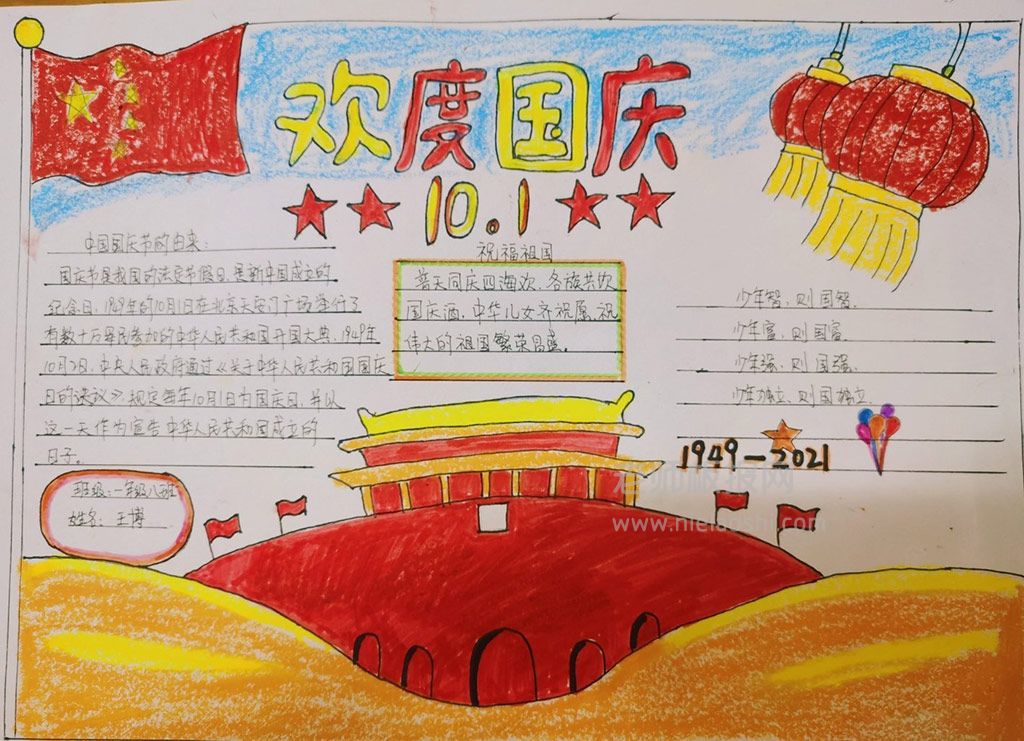 欢度国庆
10.1
中国国庆节的由来:
国庆节是我国的法定节假日,是新中国成立的
纪念日,1949年的10月1日在北京天安门广场举行了
有数十万军民参加的中华人民共和国开国大典,1949年
10月2日,中央人民政府通过《关于中华人民共和国国庆
日的决议》,规定每年10月1日为国庆日,并以
这一天作为宣告中华人民共和国成立的
日子。
班级:一年级八班
姓名: 王博
祝福祖国
普天同庆四海欢,各族共饮
国庆酒,中华儿女齐祝愿,祝
伟大的祖国繁荣昌盛。
少年智,则国智,
少年富,则国富,
少年强,则国强,
少年独立,则国独立,
1949—2021
老师板报网